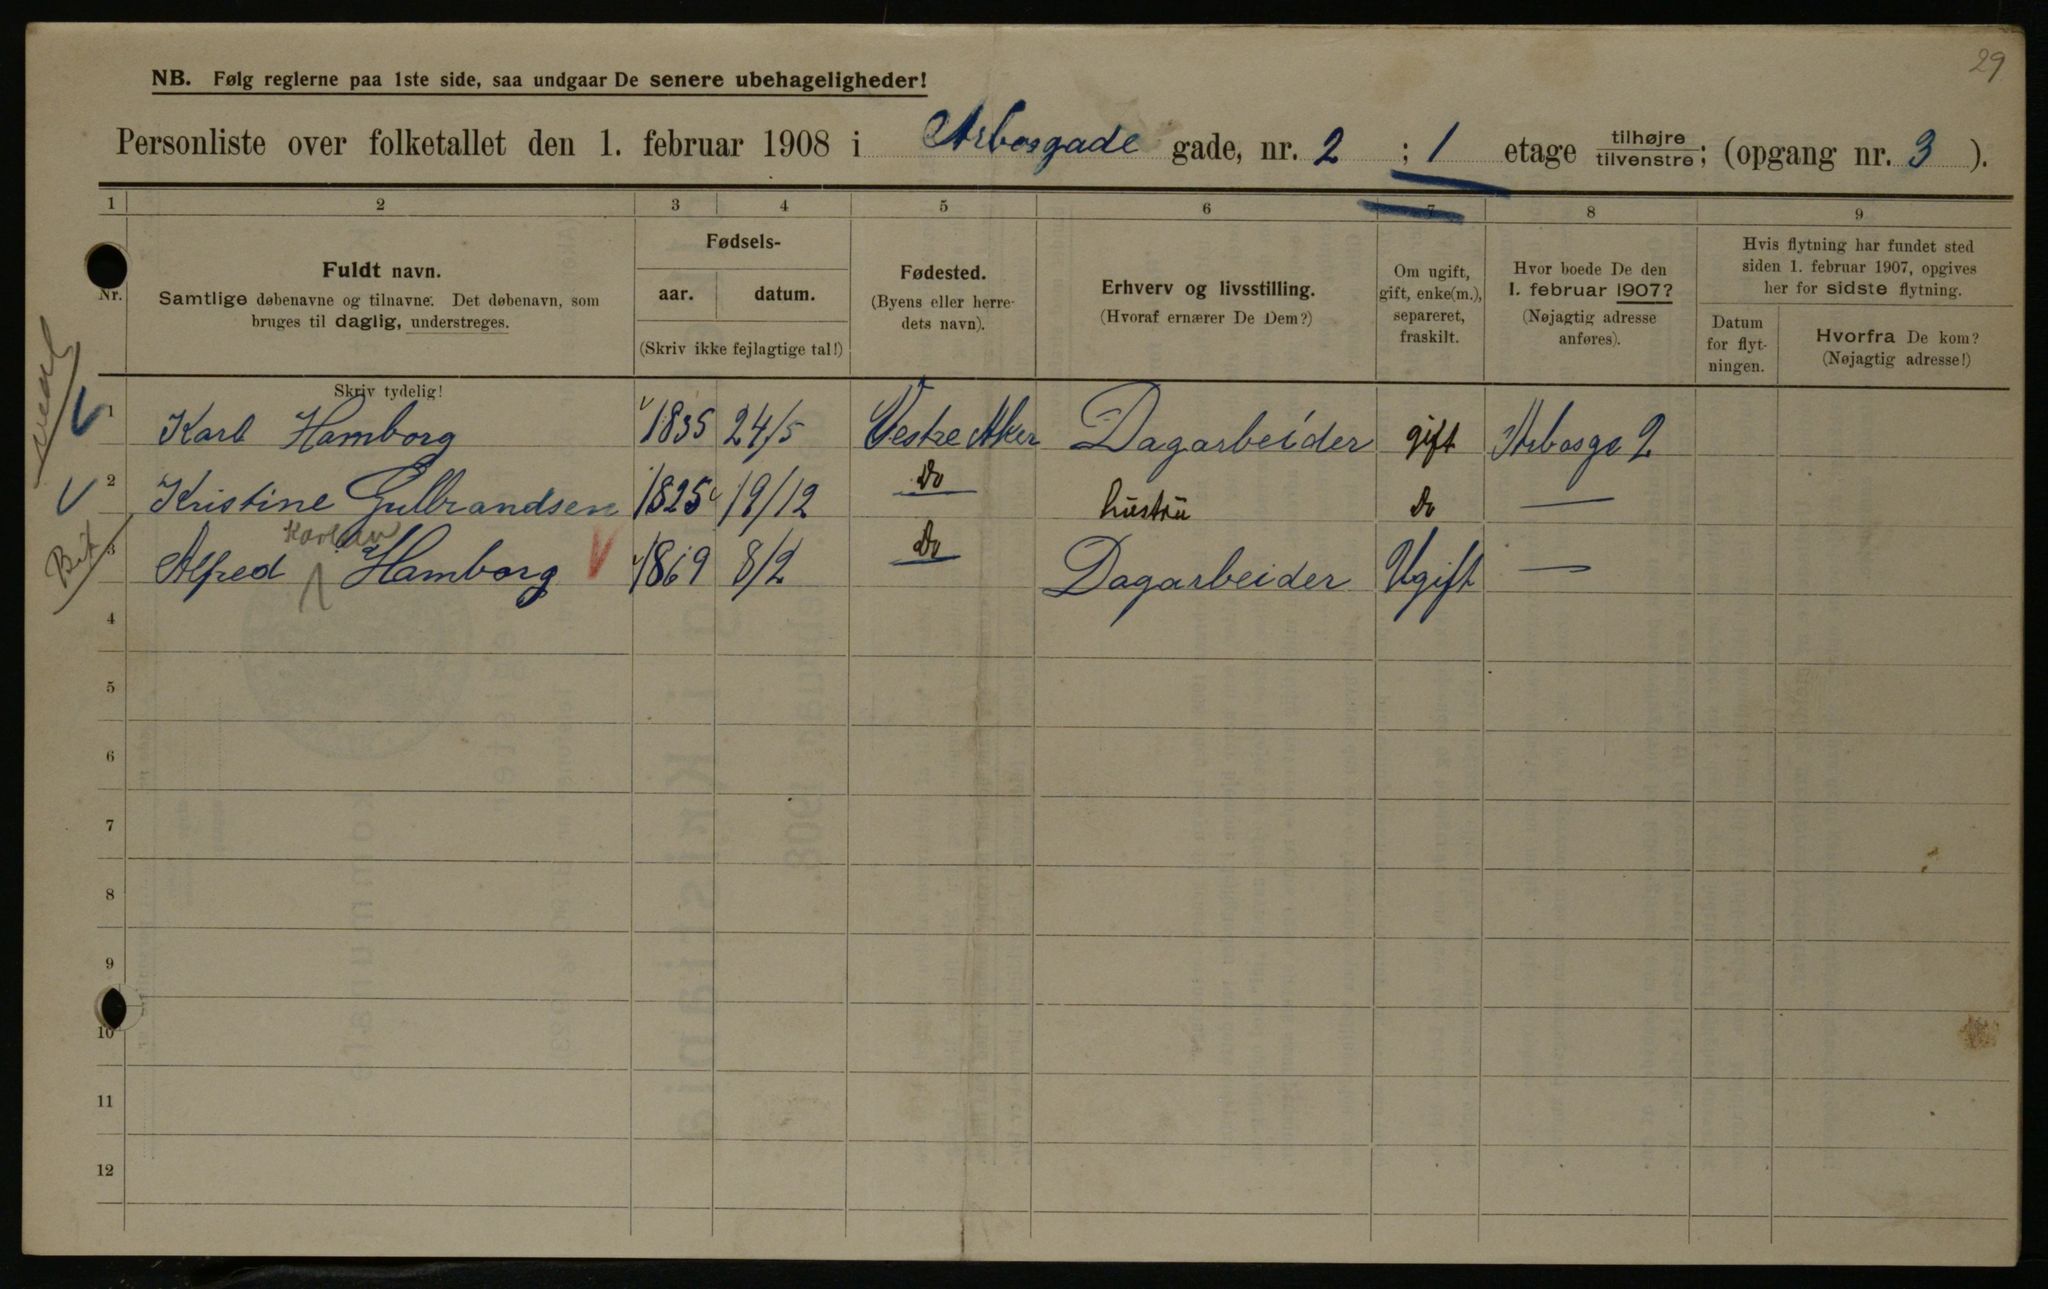 29
NB. Følg reglerne paa 1ste side, saa undgaar De senere ubehageligheder!
Personliste over folketallet den 1. februar 1908 i Arbosgade gade, nr. 2 ; 1 etage tilhøjre tilvenstre; (opgang nr. 3 ).
1 2 3 4 5 6 7 8 9
Nr.
Fuldt navn.
Samtlige døbenavne og tilnavne. Det døbenavn, som
bruges til daglig, understreges.
Skriv tydelig!
Fødsels-
aar. datum.
(Skriv ikke fejlagtige tal!)
Fødested.
(Byens eller herre-
dets navn).
Erhverv og livsstilling.
(Hvoraf ernærer De Dem?)
Om ugift,
gift, enke(m.),
separeret,
fraskilt.
Hvor boede De den
1. februar 1907?
(Nøjagtig adresse
anføres).
Hvis flytning har fundet sted
siden 1. februar 1907, opgives
her for sidste flytning.
Datum
for flyt-
ningen.
Hvorfra De kom?
(Nøjagtig adresse!)
1 Karl Hamborg 1835 24/5 Vestre Aker Dagarbeider gift Arbosge 2
2 Kristine Gulbrandsen 1825 19/12 Do hustru do —
3 Alfred Hamborg 1869 8/2 Do Dagarbeider Ugift —
4
5
6
7
8
9
10
11
12